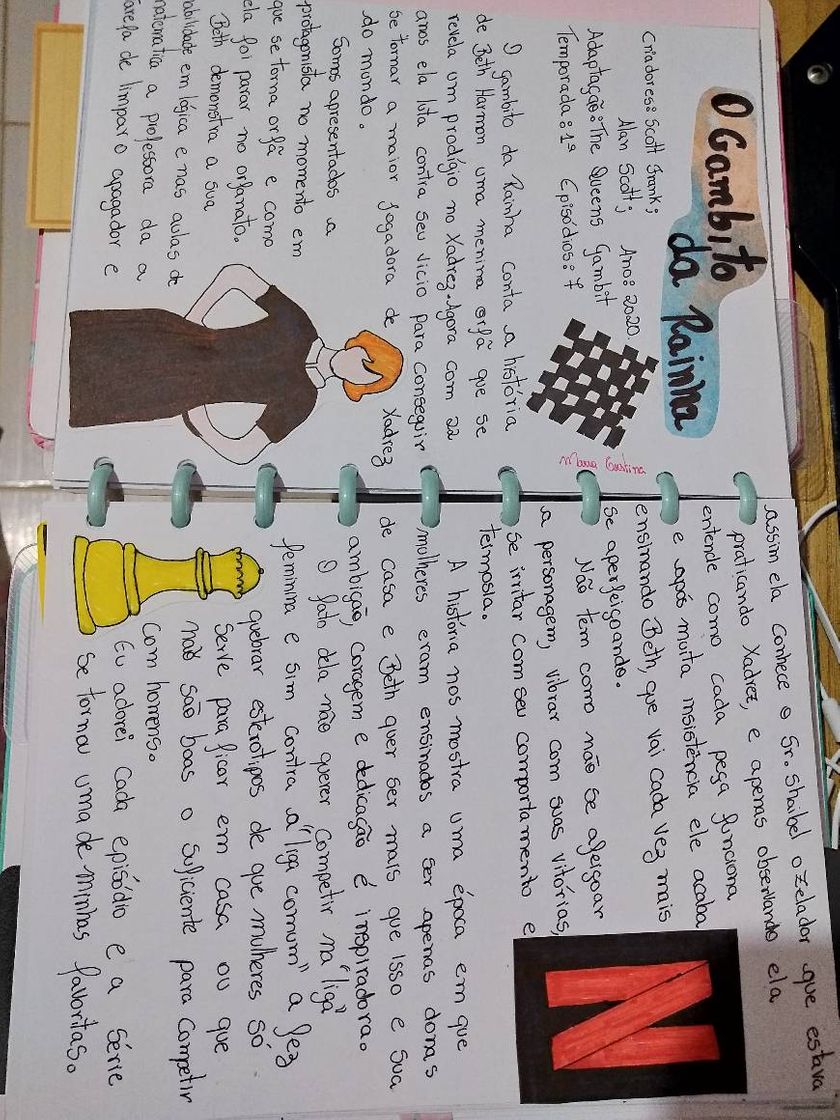 O Gambito
da Rainha
Criadores: Scott Frank;
Alan Scott; Ano: 2020
Adaptação: The Queens Gambit
Temporada: 1ª Episódios: 7
O gambito da Rainha conta a história
de Beth Harmon uma menina orfã que se
revela um prodígio no Xadrez. Agora com 22
anos ela luta contra seu vicio para conseguir
se tornar a maior jogadora de Xadrez
do mundo.
Somos apresentados a
protagonista no momento em
que se torna orfã e como
ela foi parar no orfanato.
Beth demonstra a sua
habilidade em lógica e nas aulas de
matemática a professora da a
tarefa de limpar o apagador e
Maria Cristina
assim ela conhece o Sr. Shaibel o zelador que estava
praticando Xadrez, e apenas observando ela
entende como cada peça funciona
e após muita insistência ele acaba
ensinando Beth, que vai cada vez mais
se aperfeiçoando.
Não tem como não se afeiçoar
a personagem, vibrar com suas vitórias,
se irritar com seu comportamento e
teimosia.
A história nos mostra uma época em que
mulheres eram ensinados a ser apenas donas
de casa e Beth quer ser mais que isso e sua
ambição, coragem e dedicação é inspiradora.
O fato dela não querer competir na "liga
feminina e sim contra a "liga comum" a fez
quebrar esteriótipos de que mulheres só
serve para ficar em casa ou que
não são boas o suficiente para competir
com homens.
Eu adorei cada episódio e a série
se tornou uma de minhas favoritas.
N